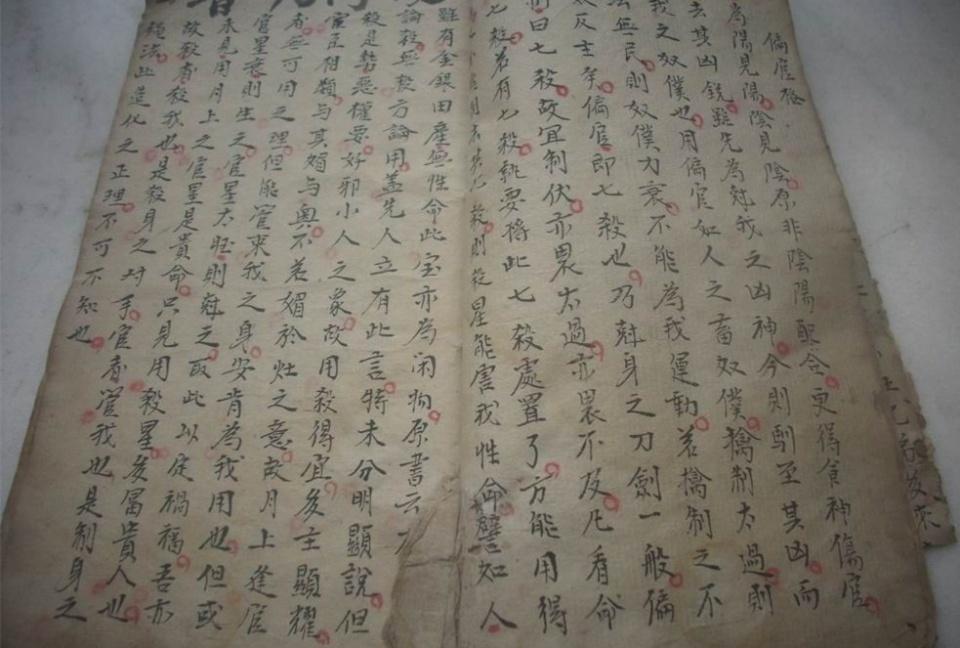 偏官格
為陽見陽陰見陰原非陰陽配合更得食神傷官
去其凶銳雖先為尅我之凶神今則馴至其凶而
我之奴僕也用偏官如人之畜奴僕擒制太過則
法無民則奴僕力衰不能為我運動若擒制之不
太反主矣偏官即七殺也乃尅身之刀劍一般偏
曰七殺故宜制伏亦畏太過亦畏不及凡看命
七殺若有七殺就要將此七殺處置了方能用得
殺則殺星能害我性命譬如人
雖有金銀田產無性命此宝亦為闲物原書云
論殺無殺方論用盖先人立有此言特未分明顯說但
殺是勢惡權要好邪小人之象故用殺得宜多主顯耀
官正相類与其媚与奥不若媚於灶之意故月上逢官
者無可用之理但能管束我之身安肯為我用也但或
官星衰則生之官星太旺則尅之取此以定禍福吾亦
未見用月上之官星是貴命只見用殺星多富貴人也
故殺者殺我也是殺身之对手官者管我也是制身之
繩法此造化之正理不可不知也